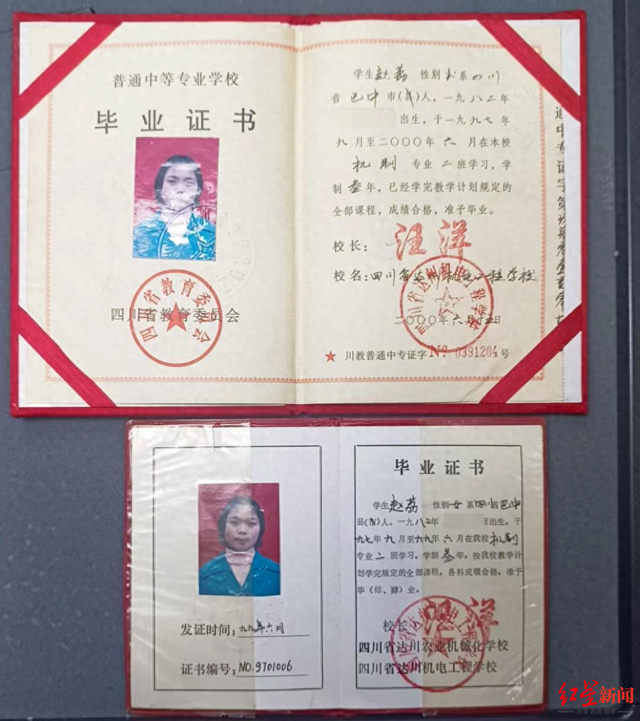 普通中等专业学校
毕业证书
四川省教育委员会
四川省教育委员会
学生赵荔 性别女系四川
省巴中市(县)人，一九八二年
出生，于一九九七年
九月至二〇〇〇年六月在本校
机制 专业二班学习，学
制叁年，已经学完教学计划规定的
全部课程，成绩合格，准予毕业。
校长：汪洋
校名：四川省达州机电工程学校
二〇〇〇年六月 日
川教普通中专证字№ 0391204号
发证时间：九九年六月
证书编号：NO.9701006
毕业证书
学生赵荔 性别女系四川省巴中
县(市)人。一九八二年 出生。于
九七年九月至九九年六月在我校机制
专业二班学习。学制叁年。按我校教学计
划学完规定的全部课程，各科成绩合格。准于
毕(结、肄)业。
校长 汪洋
四川省达川农业机械化学校
四川省达川机电工程学校
红星新闻